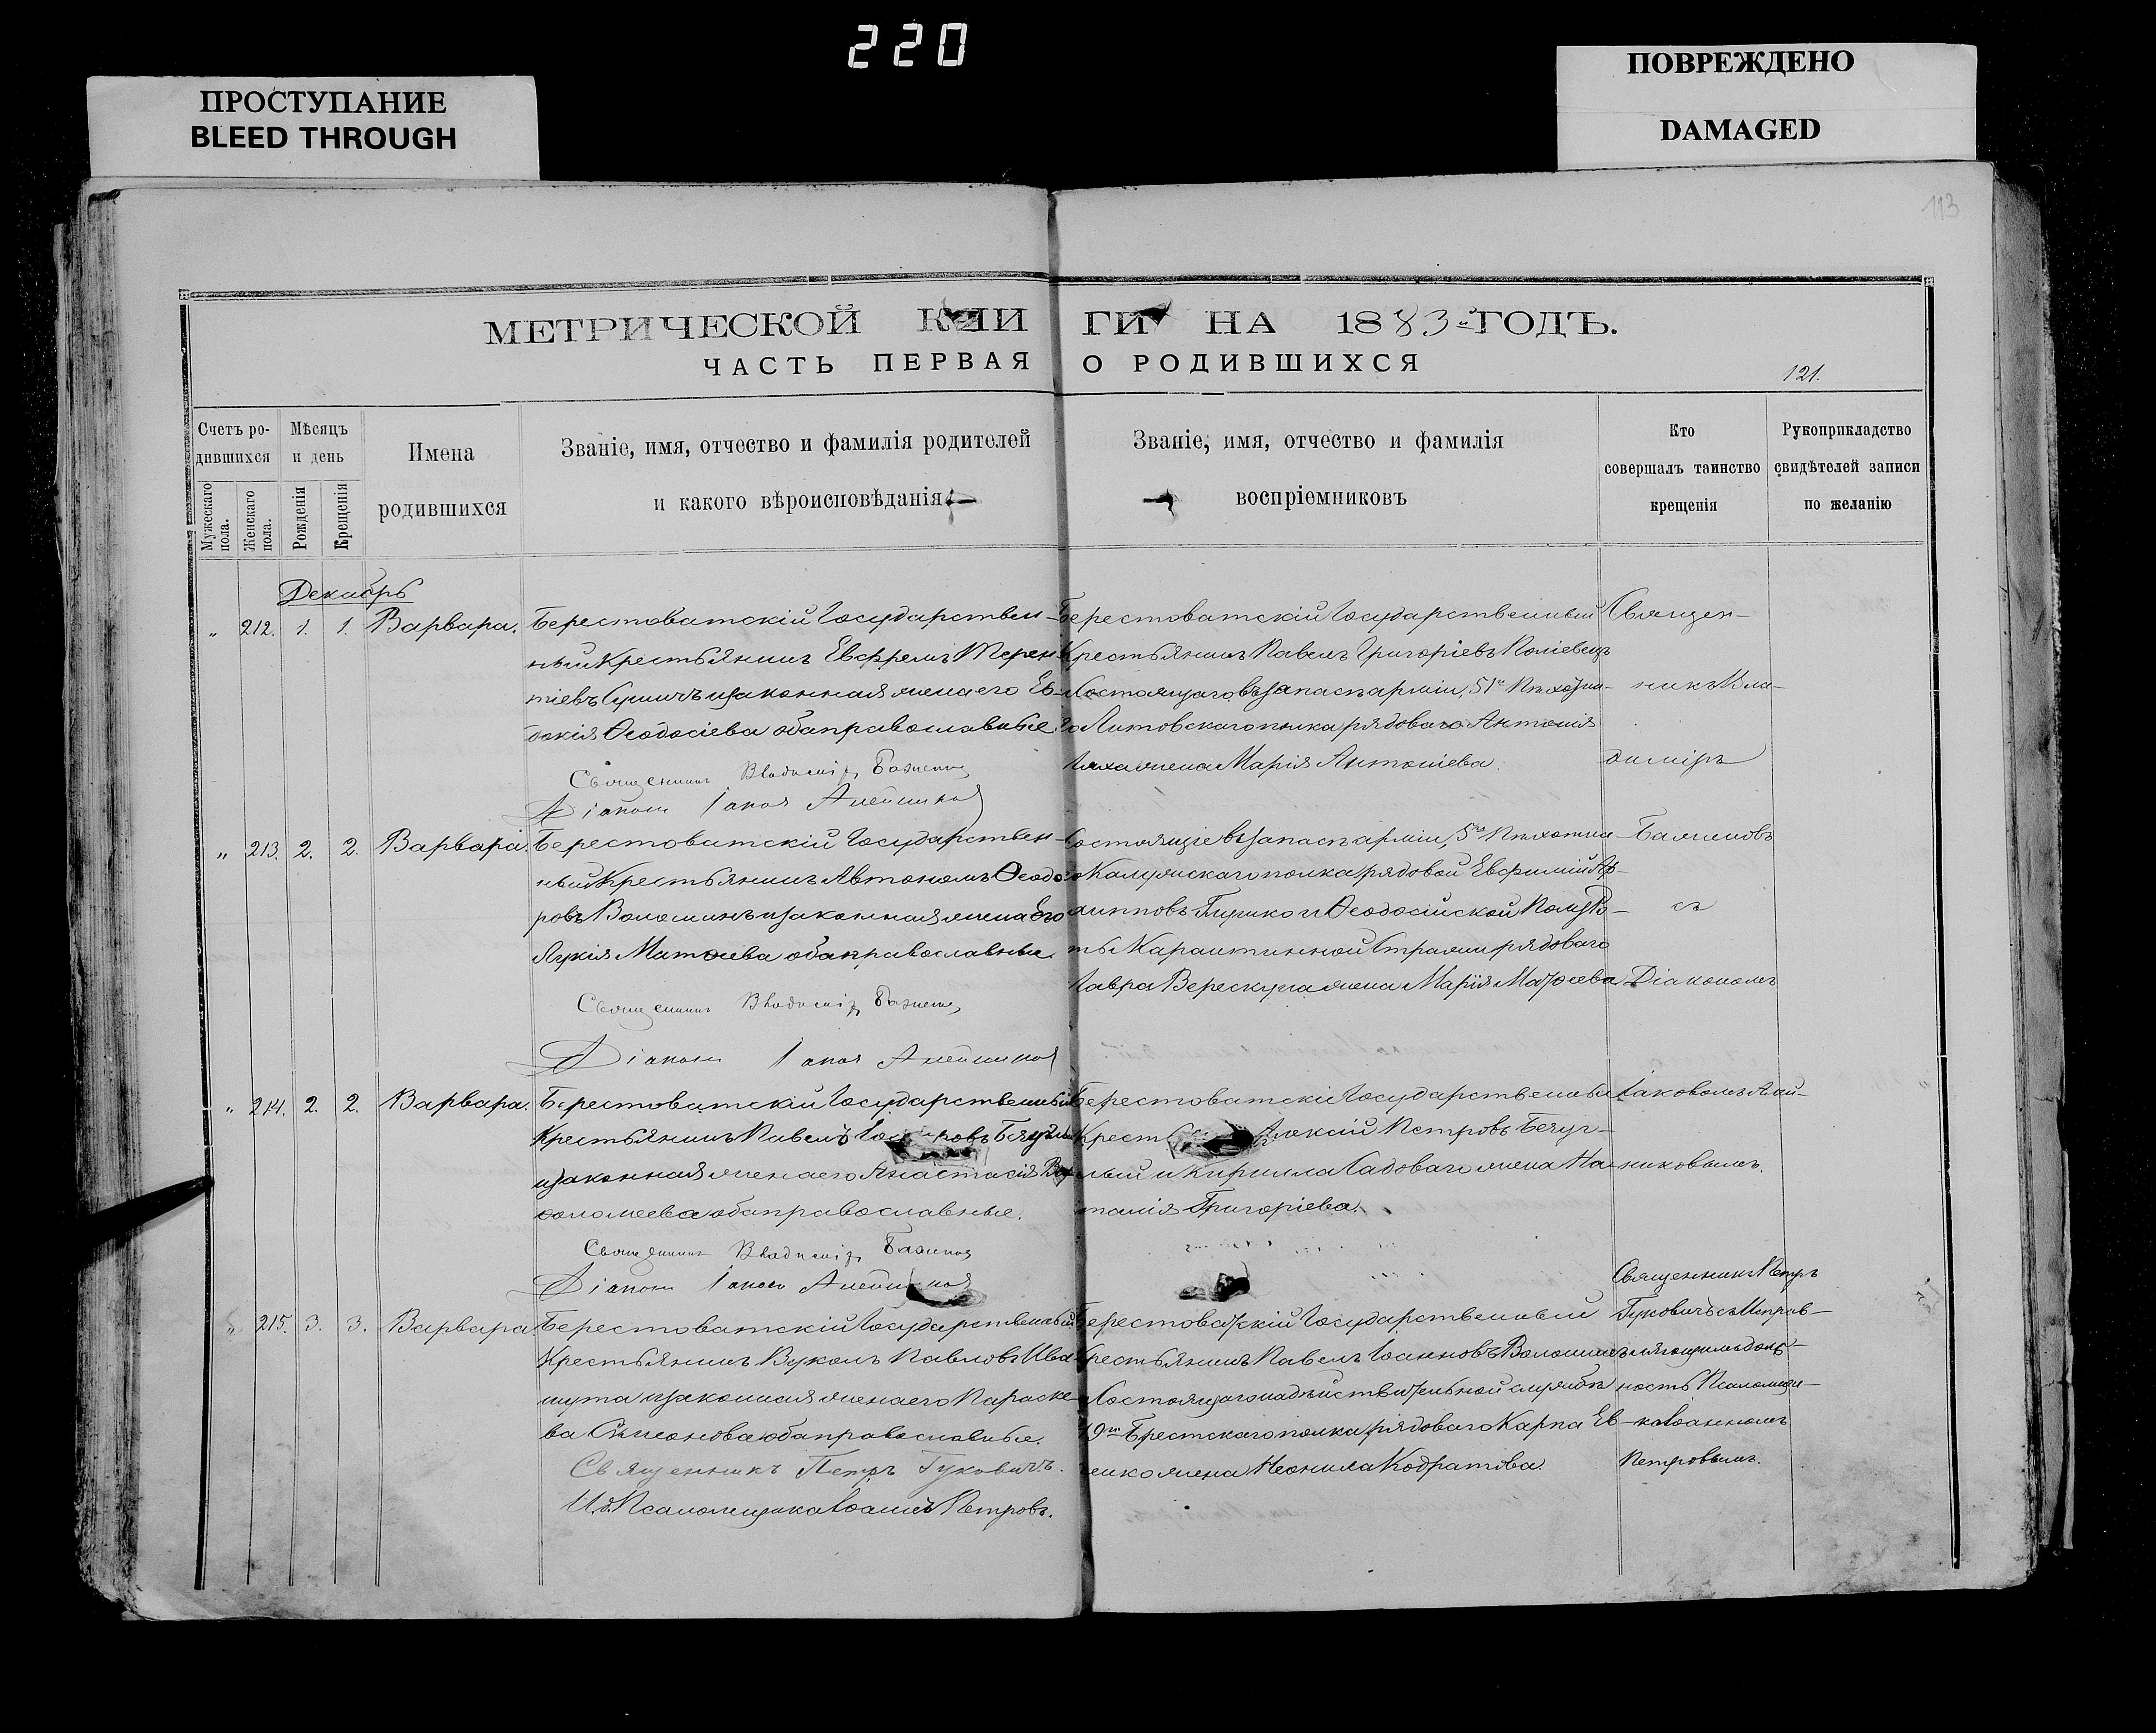 220
ПРОСТУПАНИЕ
BLEED THROUGH
ПОВРЕЖДЕНО
DAMAGED
113
МЕТРИЧЕСКОЙ КНИГИ НА 1883 ГОДЪ.
ЧАСТЬ ПЕРВАЯ О РОДИВШИХСЯ
121.
Счетъ ро-
дившихся
Мужескаго пола.
Женскаго пола.
Мѣсяцъ
и день
Рожденія
Крещенія
Имена
родившихся
Званіе, имя, отчество и фамилія родителей
и какого вѣроисповѣданія.
Званіе, имя, отчество и фамилія
воспріемниковъ
Кто
совершалъ таинство
крещенія
Рукоприкладство
свидѣтелей записи
по желанію
Декабрь
" 212. 1. 1. Варвара.
Берестоватскій Государствен-
ный Крестьянинъ Евфремъ Терен-
тіевъ и законная жена его Ев-
докія Ѳеодосіева оба православные
Священникъ Владиміръ Баженовъ
Діаконъ Іаковъ Алейниковъ
Берестоватскій Государственный
Крестьянинъ Павелъ Григоріевъ
Состоящаго въ запасѣ арміи, 51го Пѣхотна-
го Литовскаго полка рядоваго Антонія
жена Марія Антоніева.
Священ-
никъ Вла-
диміръ
" 213. 2. 2. Варвара.
Берестоватскій Государствен-
ный Крестьянинъ Автономъ Ѳеодо-
ровъ Волошинъ и законная жена Его
Лукія Матѳеева оба православные.
Священникъ Владиміръ Баженовъ
Діаконъ Іаковъ Алейниковъ
Состоящіе въ запасѣ арміи, 5го Пѣхотна-
го Калужскаго полка рядовой Евфимій Ар-
хипповъ и Ѳеодосійской Полуро-
ты Карантинной Стражи рядоваго
Лавра жена Марія Матѳеева
Баженовъ
съ
Діакономъ
" 214. 2. 2. Варвара.
Берестоватскій Государственный
Крестьянинъ Павелъ
и законная жена его Анастасія Вар-
ѳоломеева оба православные.
Священникъ Владиміръ Баженовъ
Діаконъ Іаковъ Алейниковъ
Берестоватскій Государственный
Крест Алексій Петровъ Бегуч-
лый и Кирилла Садоваго жена На-
талія Григоріева.
Іаковомъ Алей-
никовымъ.
" 215. 3. 3. Варвара.
Берестоватскій Государственный
Крестьянинъ Вуколъ Павловъ Ива-
шута и законная жена его Параске-
ва Симонова оба православные.
Священникъ Петръ Гуковичъ.
И. д. Псаломщика Іоаннъ Петровъ.
Берестоватскій Государственный
Крестьянинъ Павелъ Іоанновъ Волошинъ
и Состоящаго на дѣйствительной службѣ
49го Брестскаго полка рядоваго Карпа Ев-
жена Неонила Кодратова.
Священникъ Петръ
Гуковичъ съ Исправ-
ляющимъ долж-
ность Псаломщи-
ка Іоанномъ
Петровымъ.